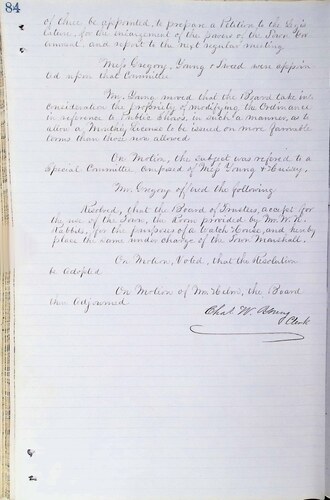 84
of three be appointed, to prepare a Petition to the Legis
lature, for the enlargement of the powers of the Town Gov
ernment, and report to the next regular meeting
Mess Gregory, Young & Sneed were appoin
ted upon that Committee
Mr. Young moved that the Board take into
consideration the propriety of modifying the Ordinance
in reference to Public Shows, in such a manner, as to
allow a Monthly License to be issued on more favorable
terms than those now allowed
On Motion, the subject was referred to a
Special Committee, composed of Mess Young &
Mr. Gregory offered the following
Resolved, that the Board of Trustees, accept for
the use of the Town, the Room provided by Mr. W. R.
for the purposes of a Watch House, and hereby
place the same under charge of the Town Marshall.
On Motion, Voted, that the Resolution
be adopted
On Motion of Mr. Helm, the Board
then adjourned
Chas. W.
Clerk